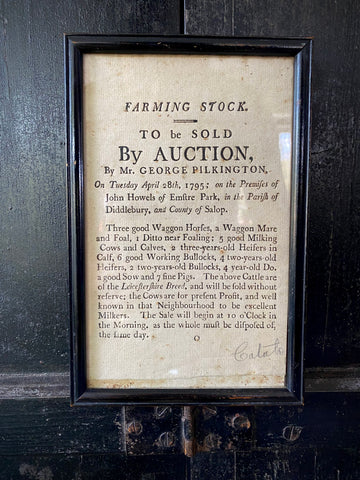 FARMING STOCK.
TO be SOLD
By AUCTION,
By Mr. GEORGE PILKINGTON,
On Tuesday April 28th, 1795; on the Premiſes of
John Howels of Emſtre Park, in the Pariſh of
Diddlebury, and County of Salop.
Three good Waggon Horſes, a Waggon Mare
and Foal, 1 Ditto near Foaling; 5 good Milking
Cows and Calves, 2 three-years-old Heifers in
Calf, 6 good Working Bullocks, 4 two-years-old
Heifers, 2 two-years-old Bullocks, 4 year-old Do.
a good Sow and 7 fine Pigs. The above Cattle are
of the Leiceſterſhire Breed, and will be ſold without
reſerve; the Cows are for preſent Profit, and well
known in that Neighbourhood to be excellent
Milkers. The Sale will begin at 10 o'Clock in
the Morning, as the whole muſt be diſpoſed of,
the ſame day.
Q